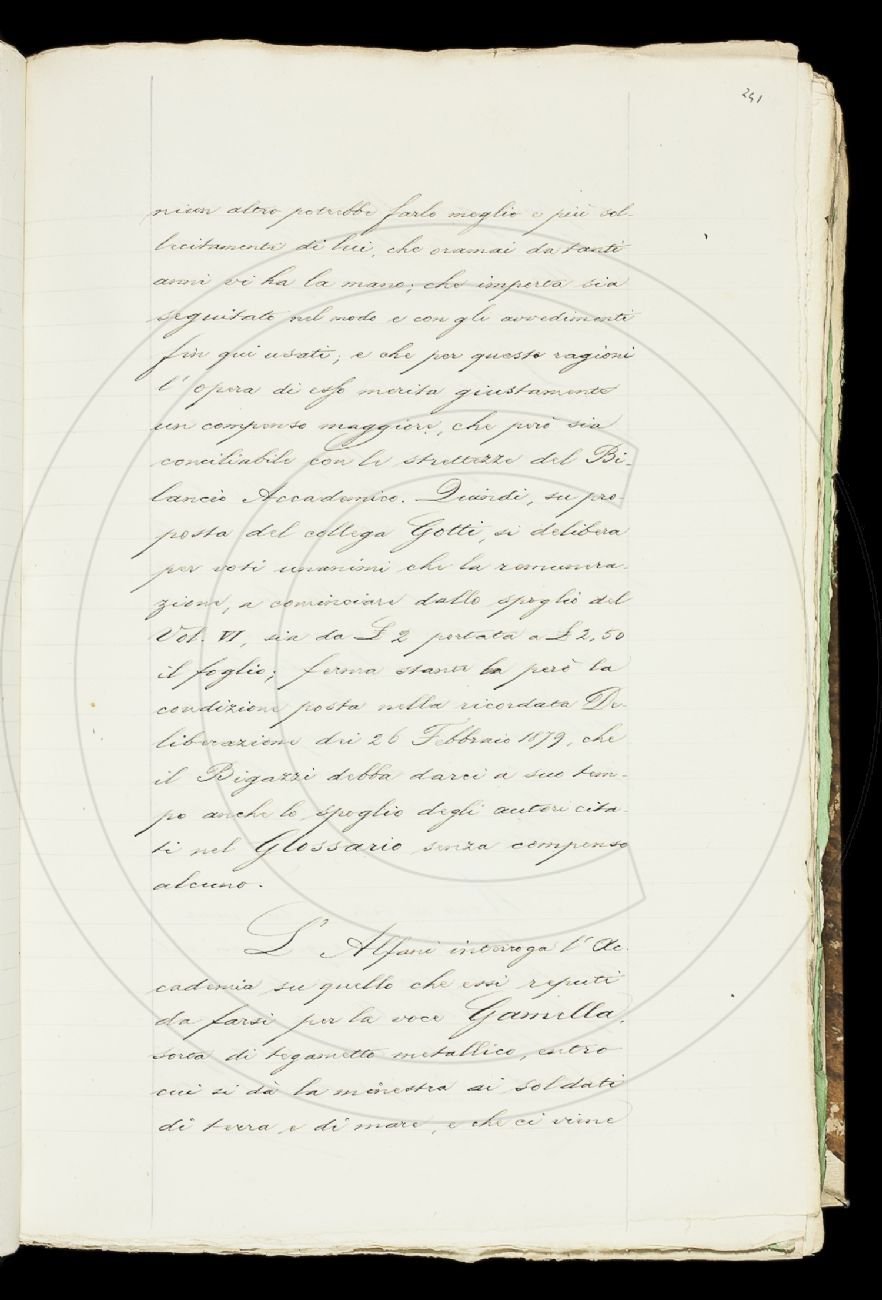 241
niun altro potrebbe farlo meglio e più sol-
lecitamente di lui, che oramai da tanti
anni vi ha la mano; che importa sia
seguitato nel modo e con gli avvedimenti
fin qui usati; e che per queste ragioni
l'opera di esso merita giustamente
un compenso maggiore, che però sia
conciliabile con le strettezze del Bi-
lancio Accademico. Quindi, su pro-
posta del collega Gotti, si delibera
per voti unanimi che la remunera-
zione, a cominciare dallo spoglio del
Vol. VI, sia da £ 2 portata a £ 2,50
il foglio; ferma stante la però la
condizione posta nella ricordata De-
liberazione dei 26 Febbraio 1879, che
il Bigazzi debba darci a suo tem-
po anche lo spoglio degli autori cita-
ti nel Glossario senza compenso
alcuno.
L'Alfani interroga l'Ac-
cademia su quello che essi reputi
da farsi per la voce Gamella,
sorta di tegametto metallico, entro
cui si dà la minestra ai soldati
di terra e di mare, e che ci viene